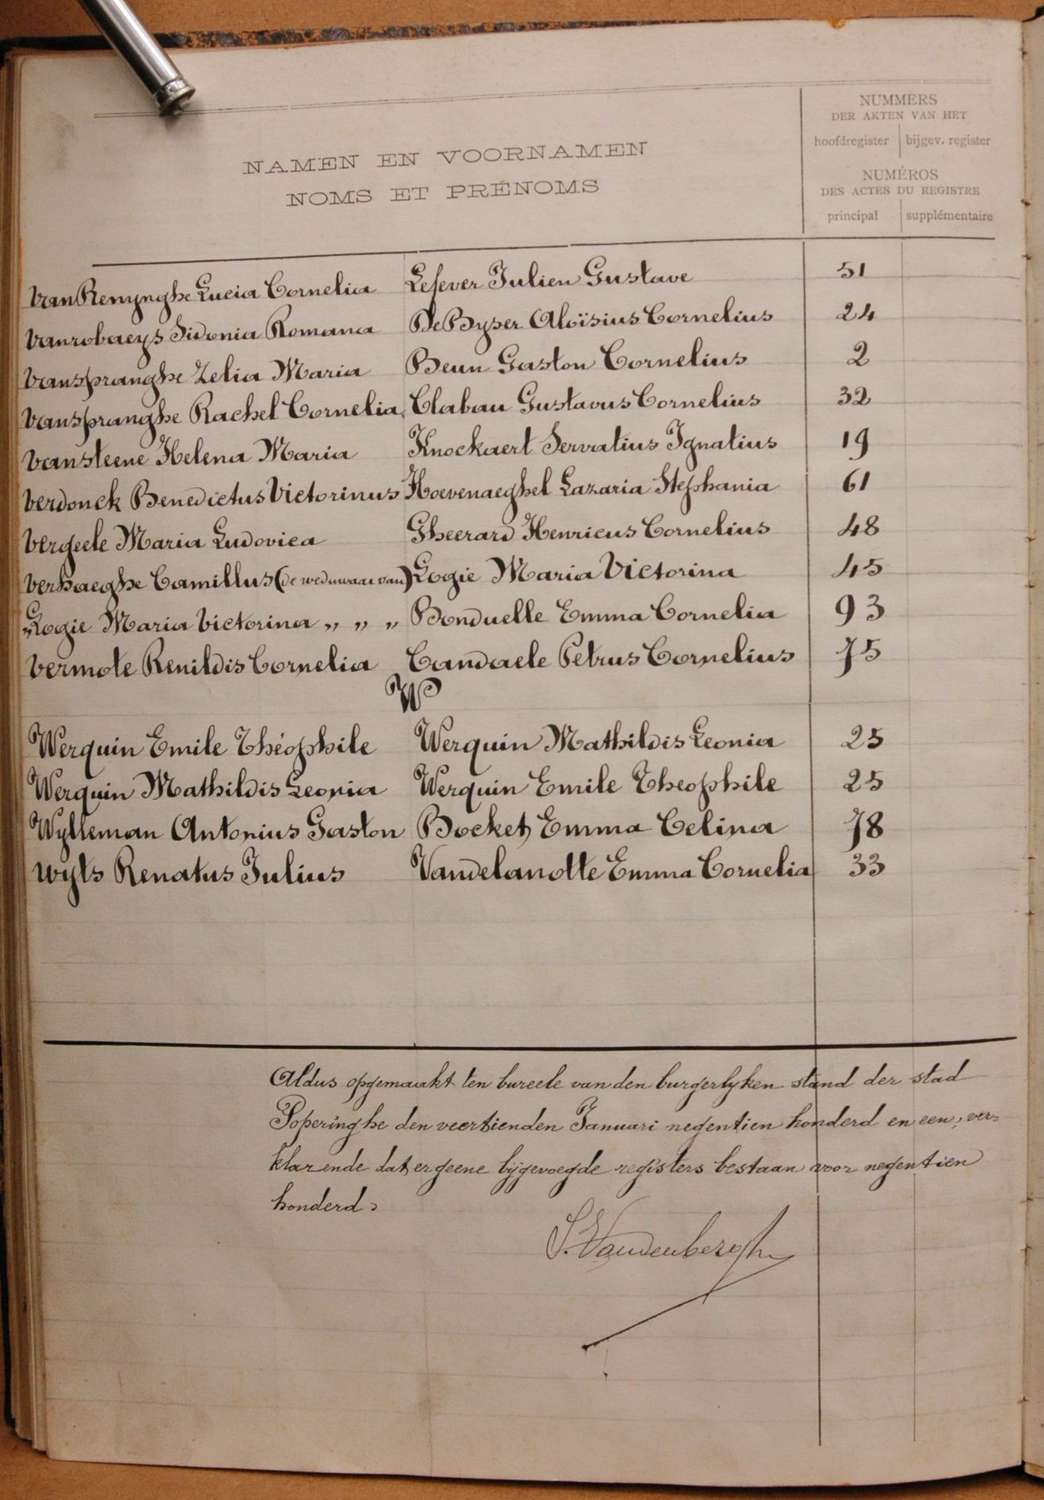 NAMEN EN VOORNAMEN
NOMS ET PRÉNOMS
NUMMERS
DER AKTEN VAN HET
hoofdregister bijgev. register
NUMÉROS
DES ACTES DU REGISTRE
principal supplémentaire
Van Renynghe Lucia Cornelia Lefever Julien Gustave 51
Vanrobaeys Sidonia Romana De Byser Aloïsius Cornelius 24
Vanspranghe Zelia Maria Beun Gaston Cornelius 2
Vanspranghe Rachel Cornelia Clabau Gustavus Cornelius 32
Vansteene Helena Maria Knockaert Servatius Ignatius 19
Verdonck Benedictus Victorinus Hoevenaeghel Lazaria Stephania 61
Vergeele Maria Ludovica Gheerard Henricus Cornelius 48
Verhaeghe Camillus (de weduwaar van) Logie Maria Victorina 45
Logie Maria Victorina „ „ „ Bonduelle Emma Cornelia 93
Vermote Renildis Cornelia Candaele Petrus Cornelius 75
W
Werquin Emile Théophile Werquin Mathildis Leonia 25
Werquin Mathildis Leonia Werquin Emile Theophile 25
Wylleman Antonius Gaston Bocket Emma Celina 78
Wyts Renatus Julius Vandelanotte Emma Cornelia 33
Aldus opgemaakt ten bureele van den burgerlyken stand der stad
Poperinghe den veertienden Januari negentien honderd en een, ver-
klarende dat er geene bijgevoegde registers bestaan voor negentien
honderd.
S. Vandenbergh